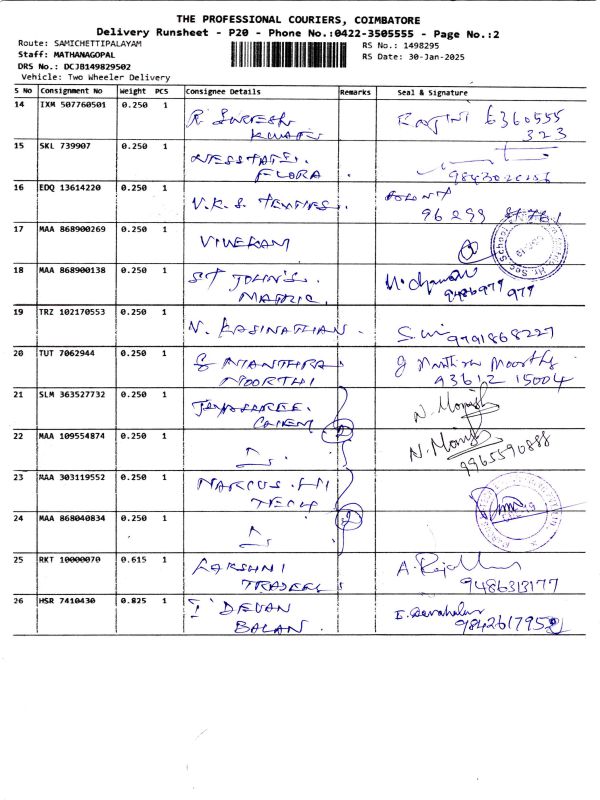 THE PROFESSIONAL COURIERS, COIMBATORE
Delivery Runsheet - P20 - Phone No.:0422-3505555 - Page No.:2
Route: SAMICHETTIPALAYAM
RS No.: 1498295
Staff: MATHANAGOPAL
RS Date: 30-Jan-2025
DRS No.: DCJB149829502
Vehicle: Two Wheeler Delivery
S No Consignment No Weight PCS Consignee Details Remarks Seal & Signature
14 IXM 507760501 0.250 1 R SURESH
KUMAR
323
15 SKL 739907 0.250 1
FLORA
16 EDQ 13614220 0.250 1 V.K.S.
96 299
17 MAA 868900269 0.250 1 VIVEKAM
18 MAA 868900138 0.250 1 ST JOHN'S.
MATRIC. 9486979 979
19 TRZ 102170553 0.250 1 N. KASINATHAN. 9791868227
20 TUT 7062944 0.250 1
MOORTHI 93612 15004
21 SLM 363527732 0.250 1 N. Monish
22 MAA 109554874 0.250 1 2 N. Monish
9965590888
23 MAA 303119552 0.250 1 MARCUS HI
TECH
24 MAA 868040834 0.250 1 2
25 RKT 10000070 0.615 1 LAKSHMI
TRADERS 9486313177
26 HSR 7410430 0.825 1 DEVAN
BALAN.